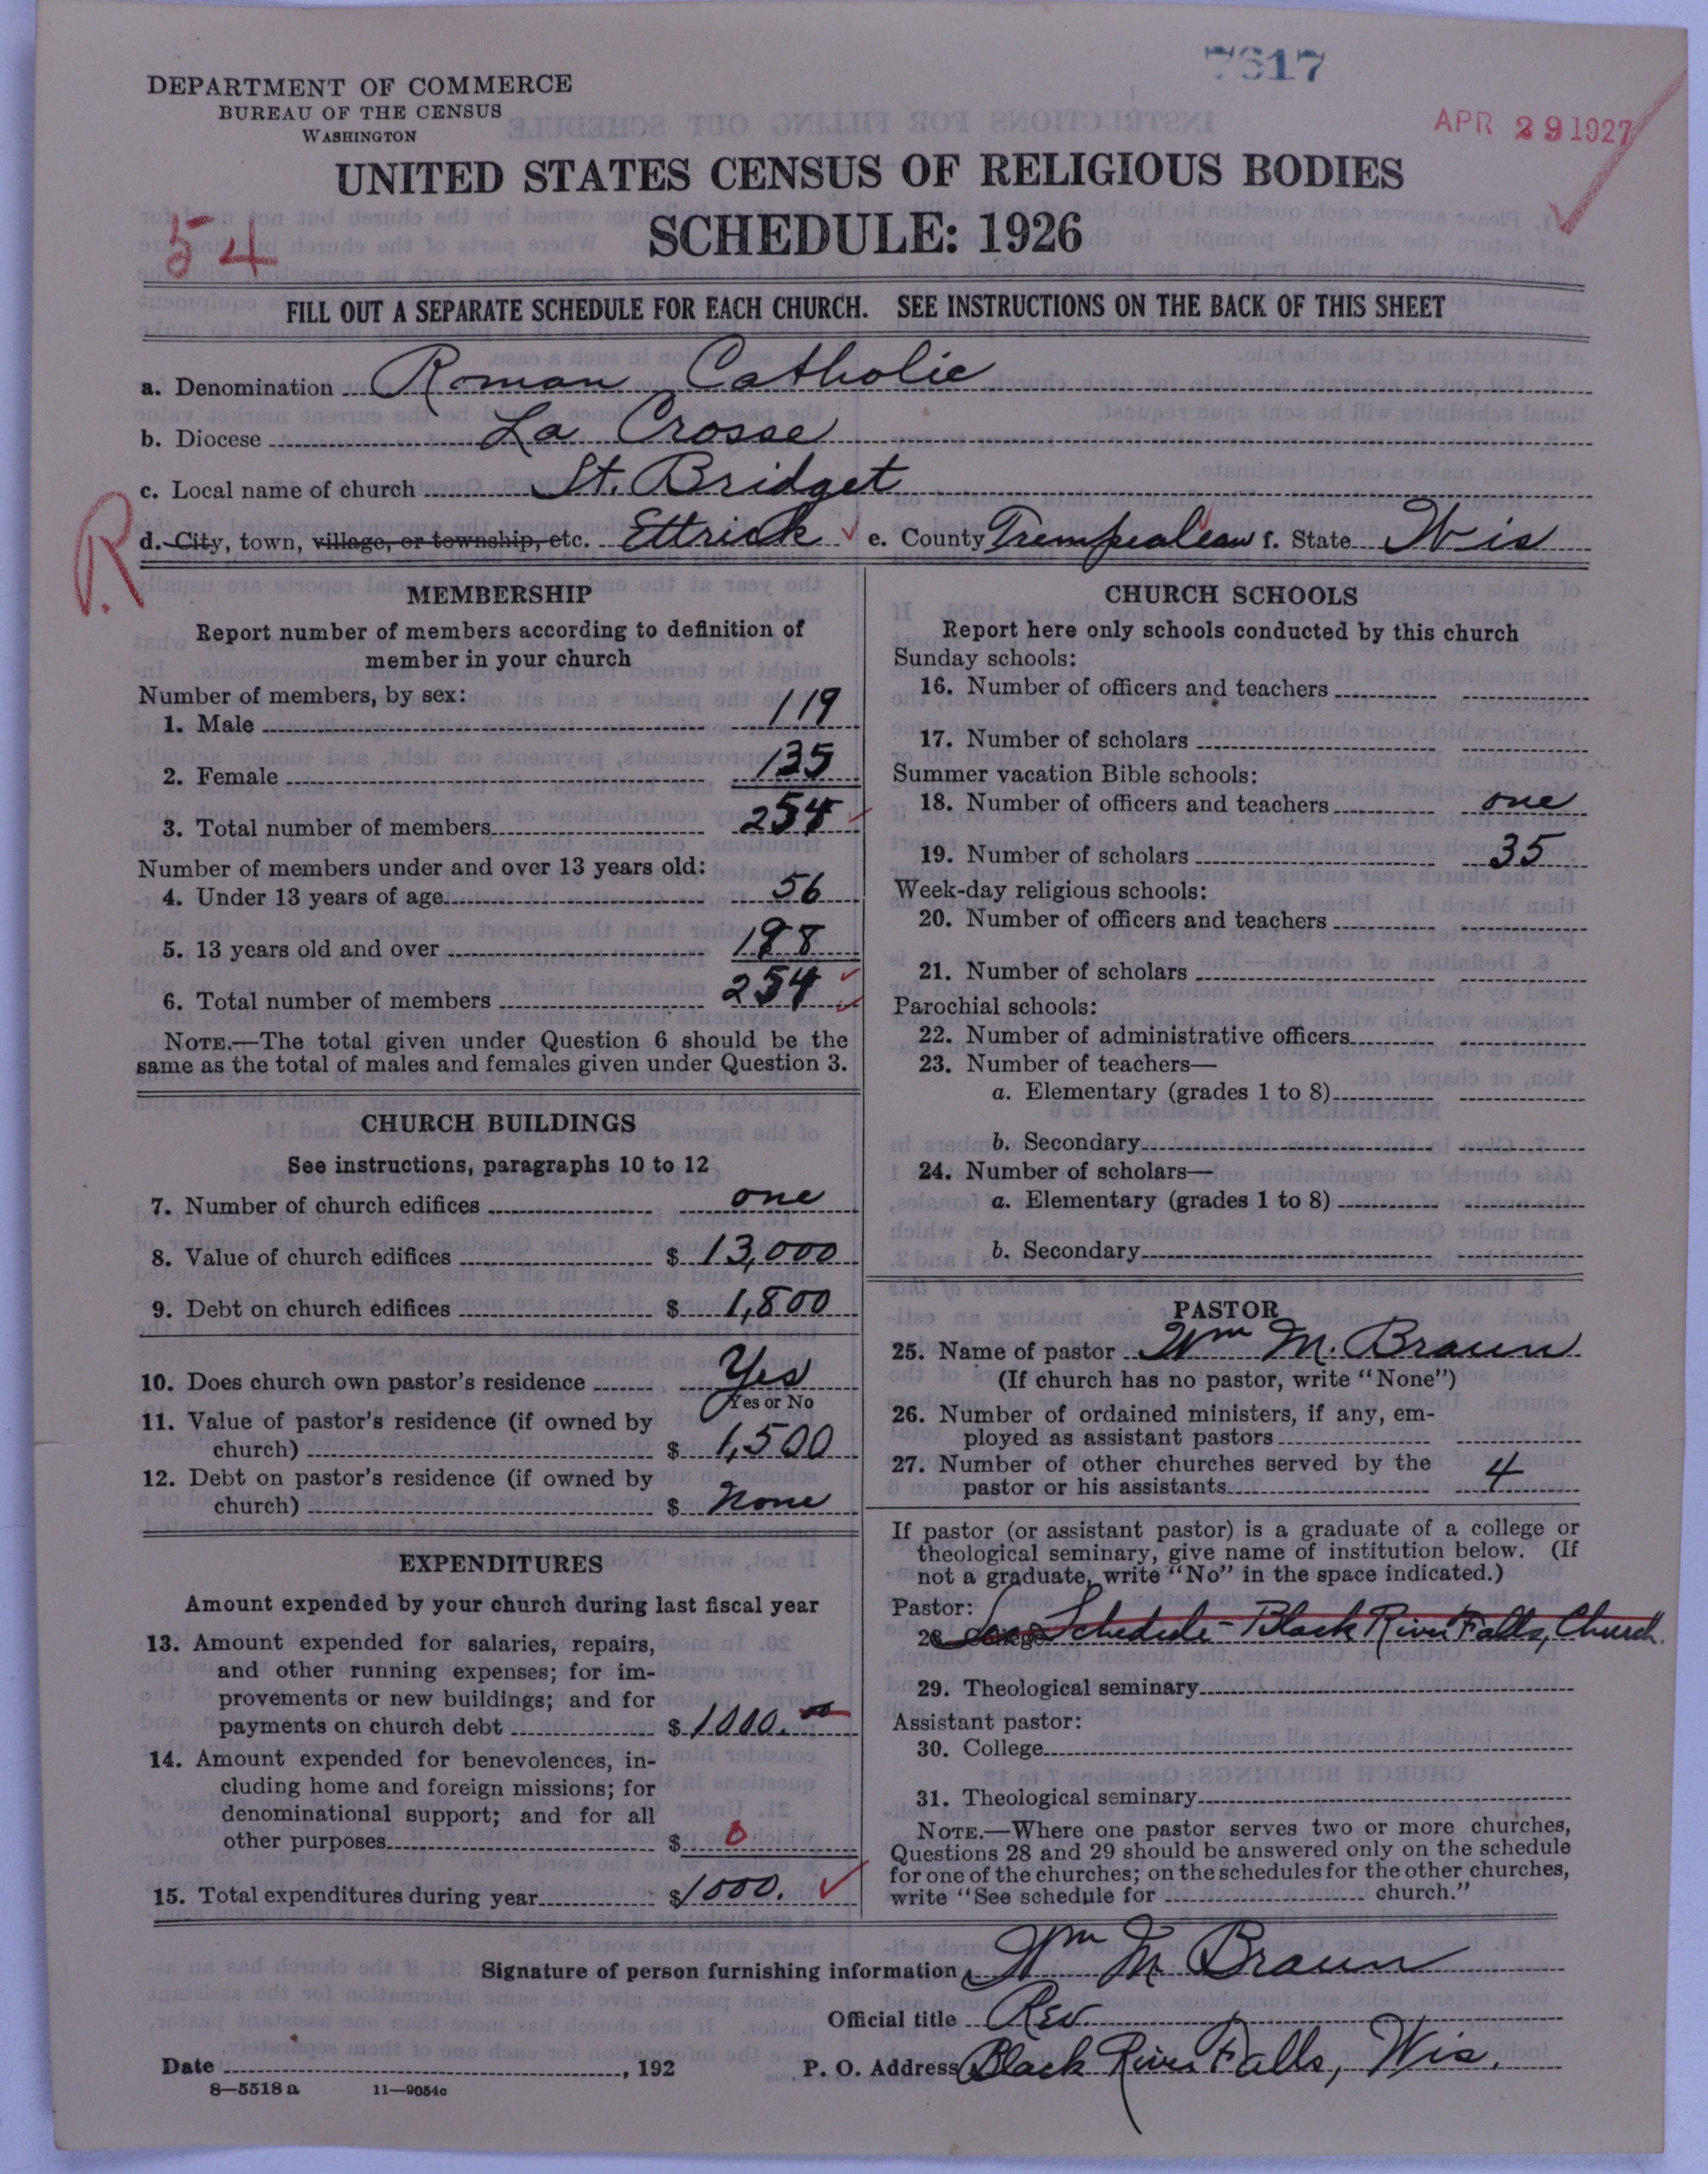 7617
APR 29 1927
DEPARTMENT OF COMMERCE
BUREAU OF THE CENSUS
WASHINGTON
UNITED STATES CENSUS OF RELIGIOUS BODIES
54
SCHEDULE: 1926
FILL OUT A SEPARATE SCHEDULE FOR EACH CHURCH. SEE INSTRUCTIONS ON THE BACK OF THIS SHEET
a. Denomination Roman Catholic
b. Diocese La Crosse
c. Local name of church St. Bridget
R.
d. City, town, village, or township, etc. Ettrick e. County Trempealeau f. State Wis
MEMBERSHIP
Report number of members according to definition of
member in your church
Number of members, by sex:
1. Male 119
2. Female 135
3. Total number of members 254
Number of members under and over 13 years old:
4. Under 13 years of age 56
5. 13 years old and over 198
6. Total number of members 254
NOTE.—The total given under Question 6 should be the
same as the total of males and females given under Question 3.
CHURCH BUILDINGS
See instructions, paragraphs 10 to 12
7. Number of church edifices one
8. Value of church edifices $ 13,000
9. Debt on church edifices $ 1,800
10. Does church own pastor's residence Yes
Yes or No
11. Value of pastor's residence (if owned by
church) $ 1,500
12. Debt on pastor's residence (if owned by
church) $ None
EXPENDITURES
Amount expended by your church during last fiscal year
13. Amount expended for salaries, repairs,
and other running expenses; for im-
provements or new buildings; and for
payments on church debt $ 1000.00
14. Amount expended for benevolences, in-
cluding home and foreign missions; for
denominational support; and for all
other purposes $ 0
15. Total expenditures during year $ 1000.
CHURCH SCHOOLS
Report here only schools conducted by this church
Sunday schools:
16. Number of officers and teachers
17. Number of scholars
Summer vacation Bible schools:
18. Number of officers and teachers one
19. Number of scholars 35
Week-day religious schools:
20. Number of officers and teachers
21. Number of scholars
Parochial schools:
22. Number of administrative officers
23. Number of teachers—
a. Elementary (grades 1 to 8)
b. Secondary
24. Number of scholars—
a. Elementary (grades 1 to 8)
b. Secondary
PASTOR
25. Name of pastor Wm M. Braun
(If church has no pastor, write "None")
26. Number of ordained ministers, if any, em-
ployed as assistant pastors
27. Number of other churches served by the
pastor or his assistants 4
If pastor (or assistant pastor) is a graduate of a college or
theological seminary, give name of institution below. (If
not a graduate, write "No" in the space indicated.)
Pastor:
28. College See Schedule - Black River Falls, Church.
29. Theological seminary
Assistant pastor:
30. College
31. Theological seminary
NOTE.—Where one pastor serves two or more churches,
Questions 28 and 29 should be answered only on the schedule
for one of the churches; on the schedules for the other churches,
write "See schedule for church."
Signature of person furnishing information Wm M Braun
Official title Rev.
Date , 192 P. O. Address Black River Falls, Wis.
8—5518 a 11—9054c